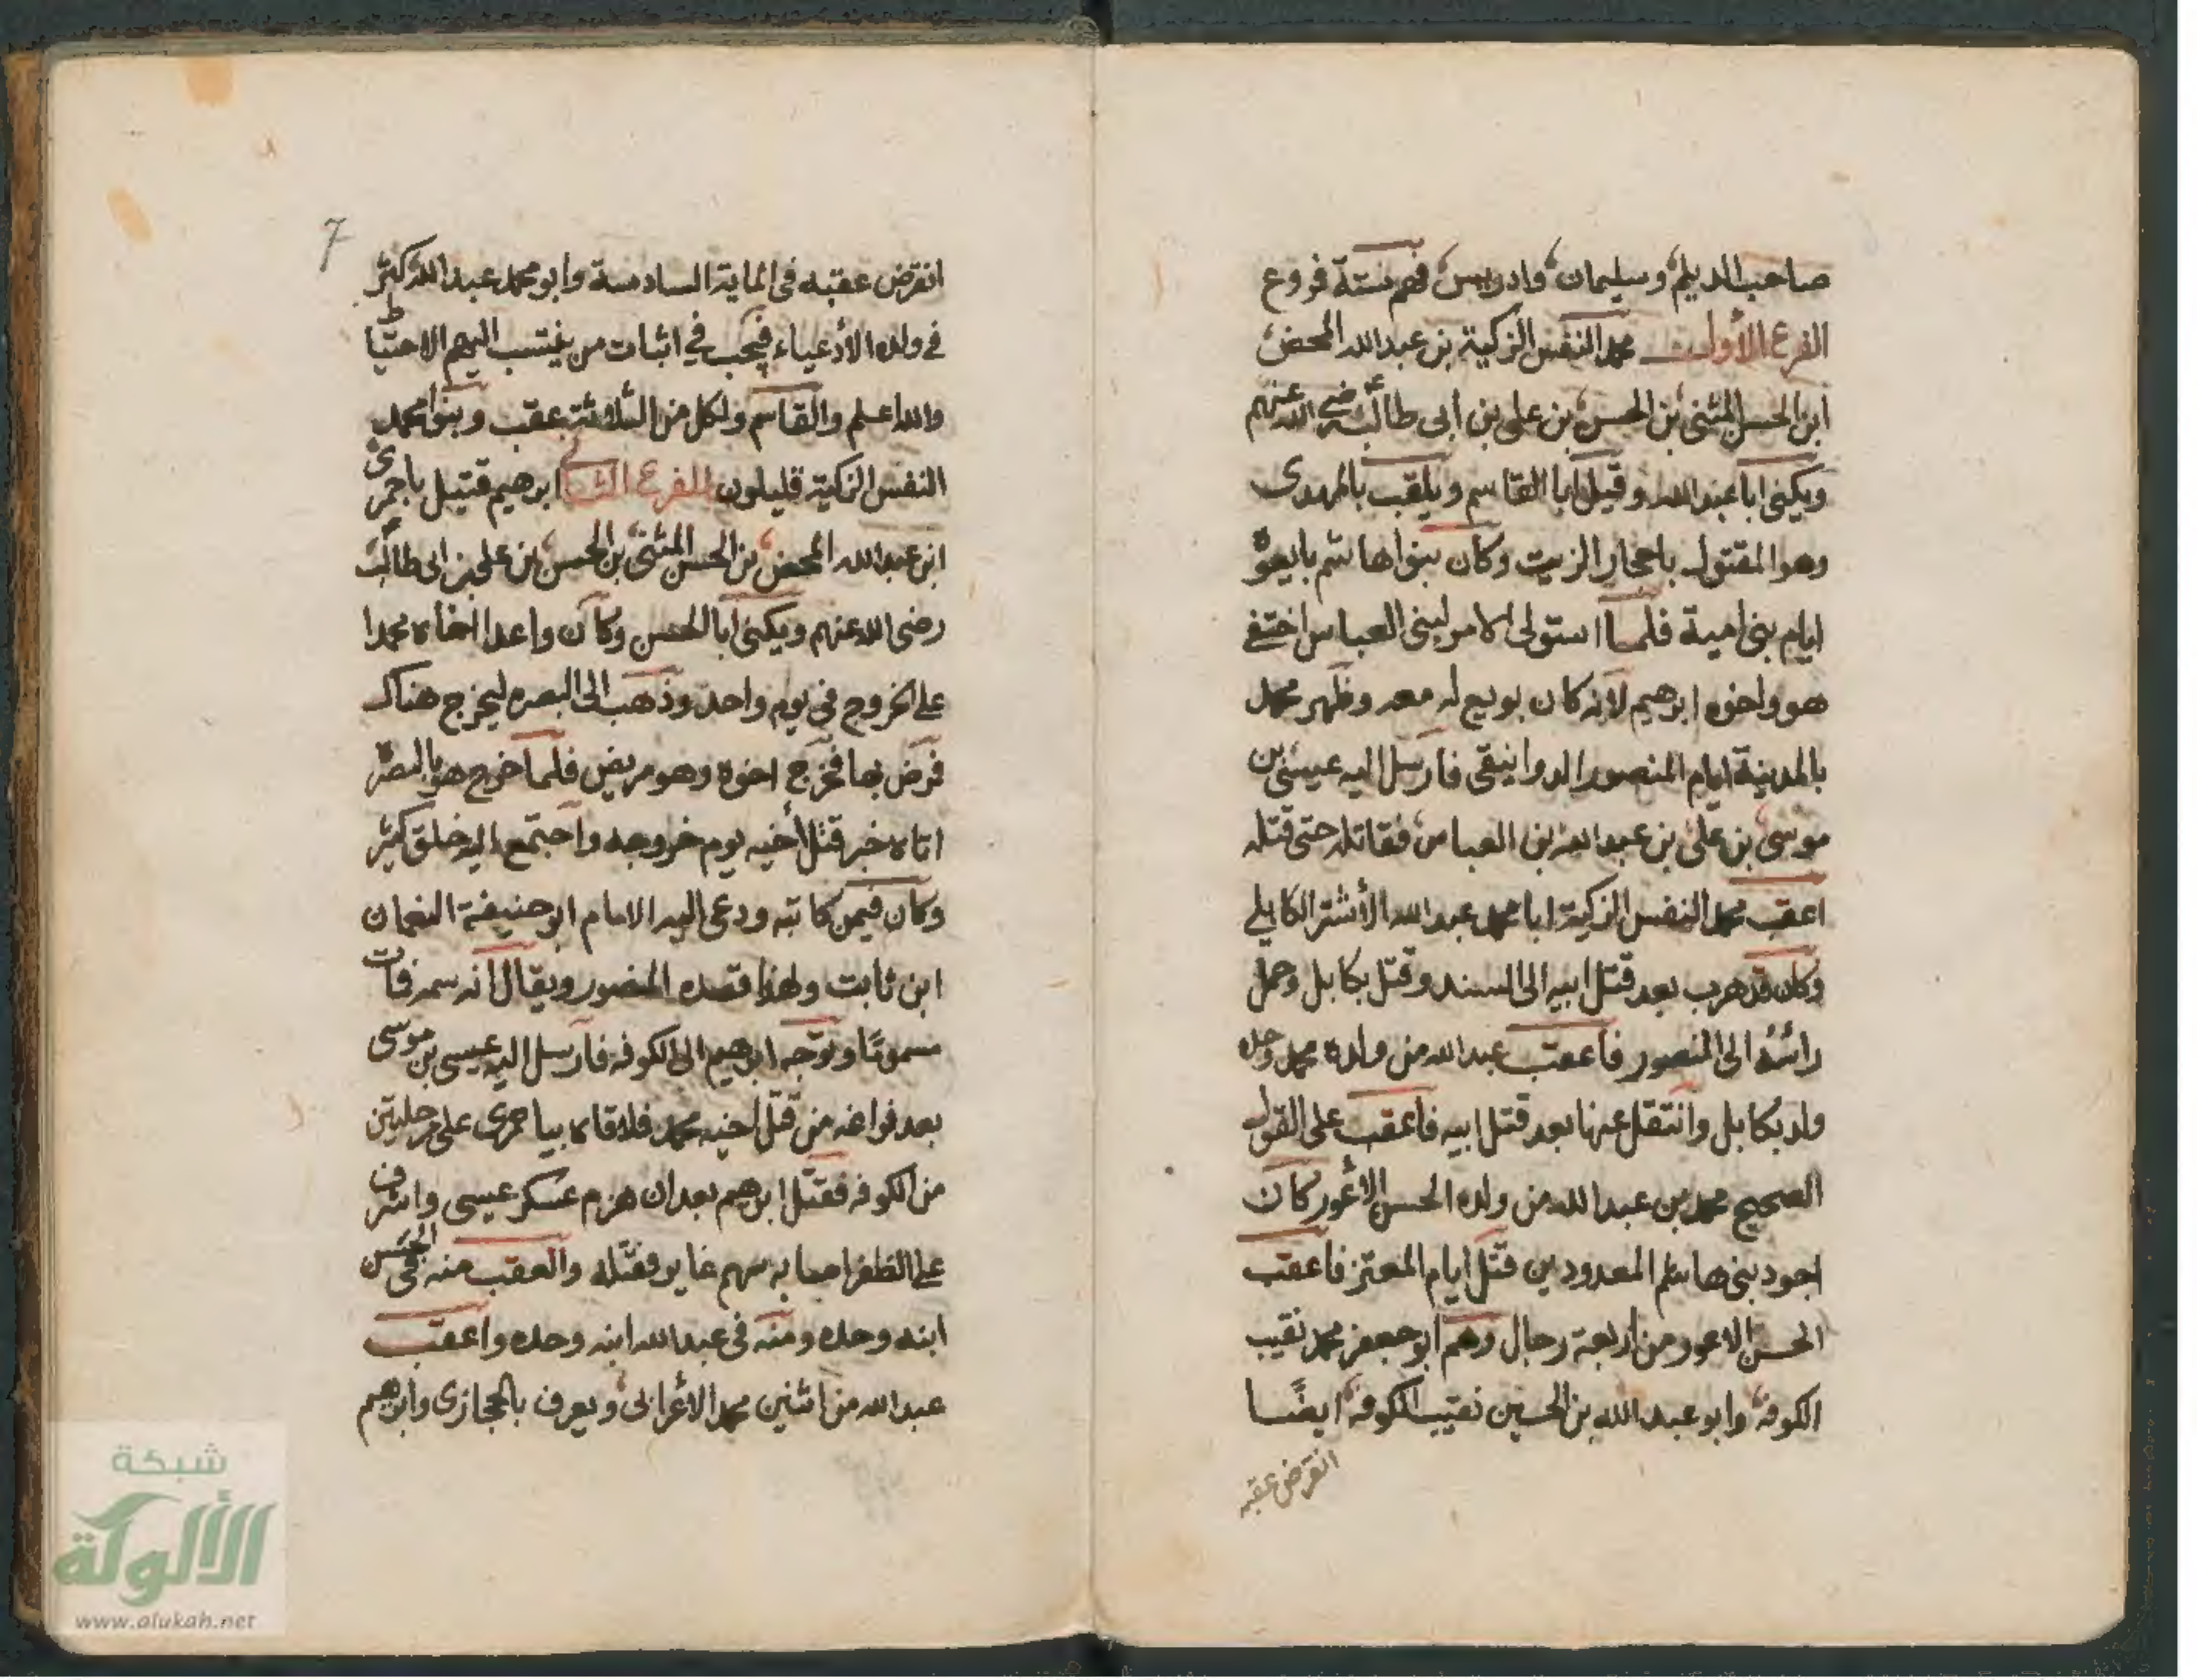 صاحب الديلم وسليمان وادريس فهم ستة فروع
الفرع الأول محمد النفس الزكية بن عبد الله المحض
ابن الحسن المثنى بن الحسن بن علي بن أبي طالب رضي الله عنهم
ويكنى ابا عبد الله وقيل ابا القاسم ويلقب بالمهدى
وهو المقتول باحجار الزيت وكان بنوا هاشم بايعوه
ايام بنى امية فلما استولى الامر لبنى العباس اختفى
هو واخوه ابرهيم لانه كان بويع له معه وظهر محمد
بالمدينة ايام المنصور الدوانيقى فارسل اليه عيسى بن
موسى بن على بن عبد الله بن العباس فقاتله حتى قتله
اعقب محمد النفس الزكية ابا محمد عبد الله الأشتر الكابلي
وكان قد هرب بعد قتل ابيه الى السند وقتل بكابل وحمل
رأسه الى المنصور فاعقب عبد الله من ولده محمد وحده
ولد بكابل وانتقل عنها بعد قتل ابيه فاعقب على القول
الصحيح محمد بن عبد الله من ولده الحسن الاعور كان
اجود بنى هاشم المعدودين قتل ايام المعتز فاعقب
الحسن الاعور من اربعة رجال وهم ابو جعفر محمد نقيب
الكوفة وابو عبد الله بن الحسين نقيب الكوفة ايضًا
انقرض عقبه
7
انقرض عقبه في الماية السادسة وابو محمد عبد الله كثر
في ولده الأدعياء فيجب في اثبات من ينتسب اليهم الاحتياط
والله اعلم والقاسم ولكل من الثلاثة عقب وبنوا محمد
النفس الزكية قليلون الفرع الثاني ابرهيم قتيل باخمرى
ابن عبد الله المحض بن الحسن المثنى بن الحسن بن على بن ابى طالب
رضى الله عنهم ويكنى ابا الحسن وكان واعد اخاه محمدا
على الخروج في يوم واحد وذهب الى البصره ليخرج هناك
فمرض بها فخرج اخوه وهو مريض فلما خرج هو بالبصرة
اتاه خبر قتل أخيه يوم خروجه واجتمع اليه خلق كثير
وكان فيمن كاتبه ودعى اليه الامام ابو حنيفة النعمان
ابن ثابت ولهذا قصده المنصور ويقال انه سمه فمات
مسمومًا وتوجه ابرهيم الى الكوفه فارسل اليه عيسى بن موسى
بعد فراغه من قتل اخيه محمد فلاقاه بباخمرى على مرحلتين
من الكوفه فقتل ابرهيم بعد ان هزم عسكر عيسى واشرف
على الظفر اصابه سهم غاير فقتله والعقب منه في الحسن
ابنه وحده ومنه فى عبد الله ابنه وحده واعقب
عبد الله من اثنين محمد الأعرابى ويعرف بالحجازى وابرهيم
شبكة
الألوكة
www.alukah.net